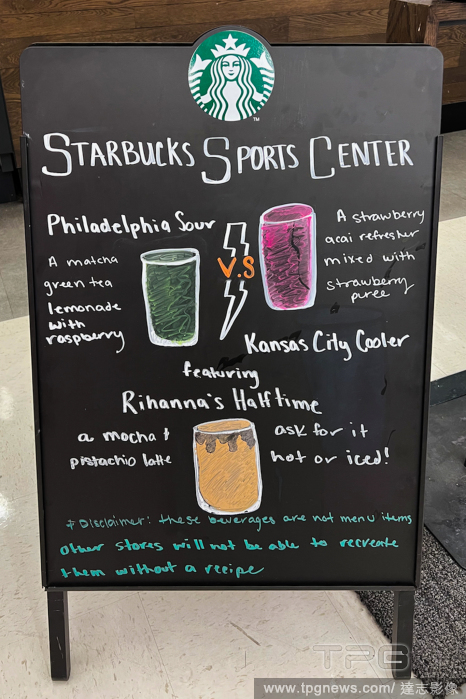 STARBUCKS SPORTS CENTER
Philadelphia Sour
A matcha
green tea
lemonade
with
raspberry
V.S
A strawberry
acai refresher
mixed with
strawberry
puree
Kansas City Cooler
featuring
Rihanna's Halftime
a mocha &
pistachio latte
ask for it
hot or iced!
* Disclaimer: these beverages are not menu items
other stores will not be able to recreate
them without a recipe
TPG
www.tpgnews.com/達志影像
TM